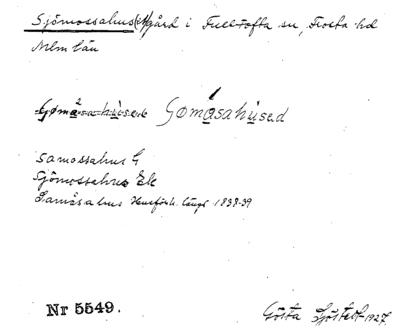 Sjömossahus(et) gård i Fulltofta sn, Frosta hd
Mlm län
Gømåsahused
Samossahus G
Sjömossahus Ek
Samåsahus Husförh. längd 1838-39
Nr 5549.
Gösta Sjöstedt 1927.